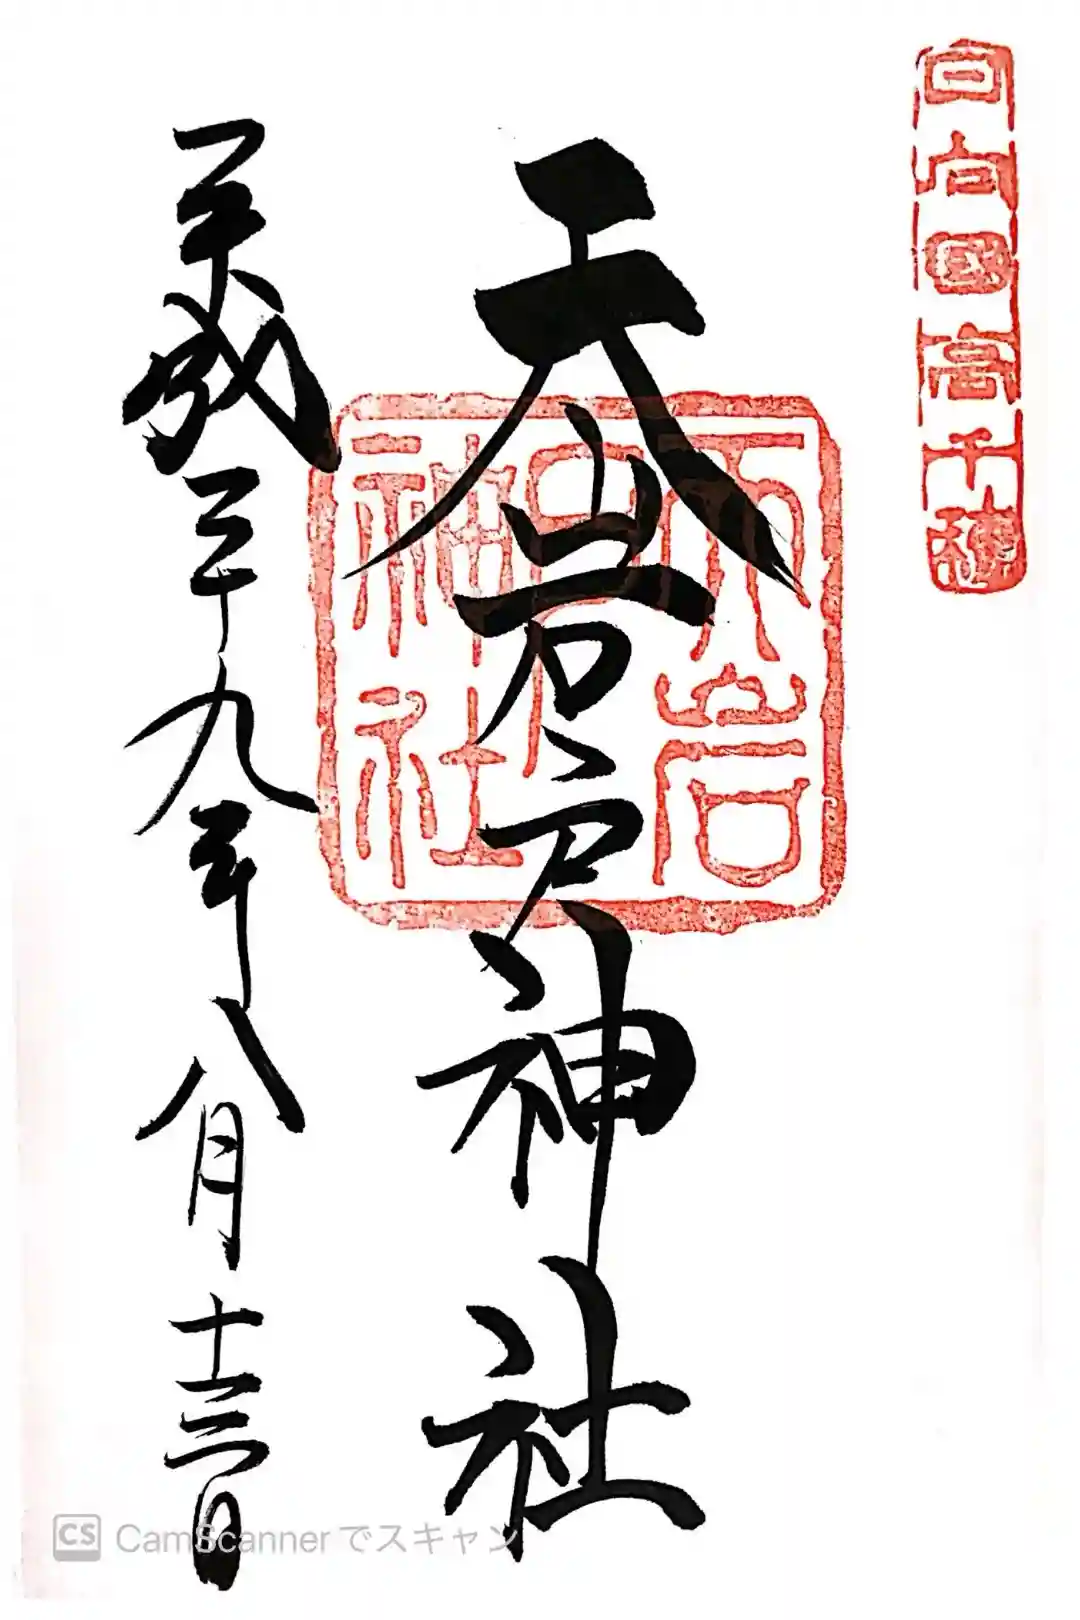 日向國高千穂
天岩戸神社
天岩戸神社
平成二十九年八月十三日
CS CamScannerでスキャン